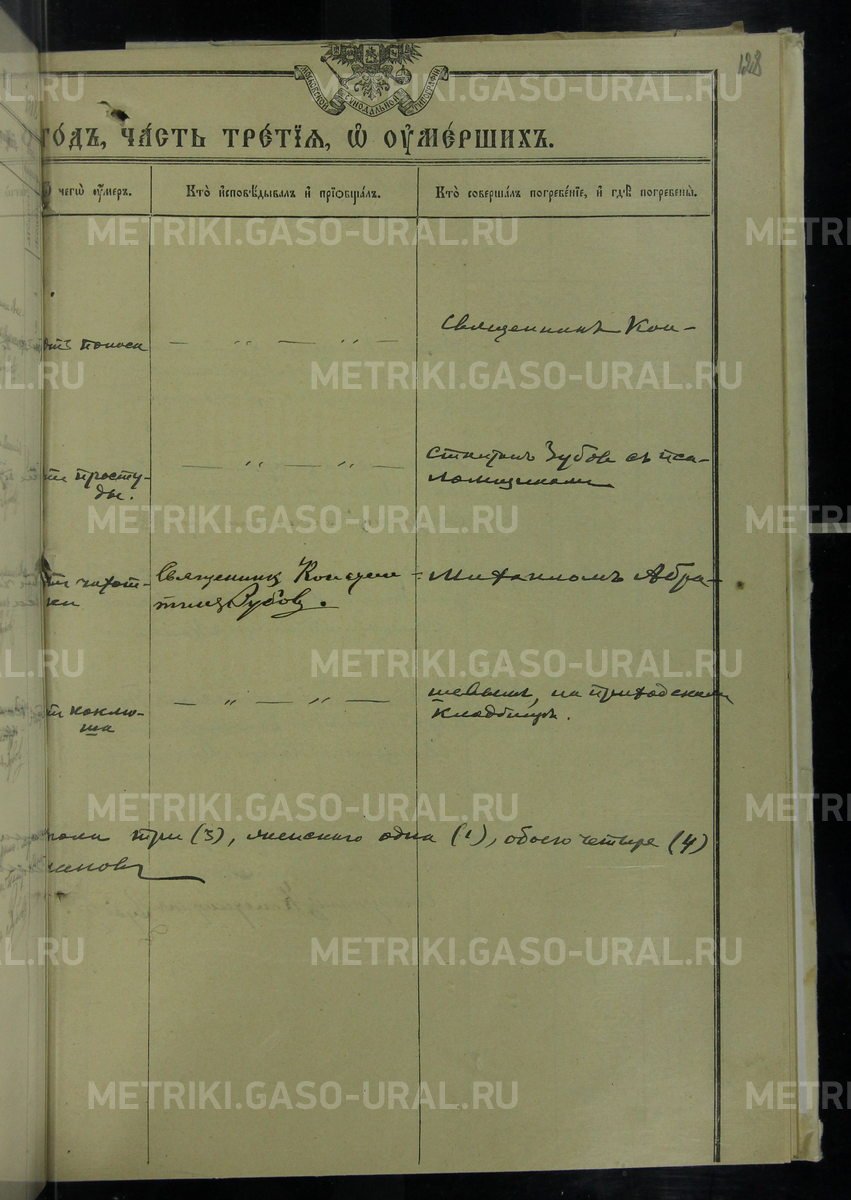 128
МОСКОВСКОЙ СѴНОДАЛЬНОЙ ТИПОГРАФІИ
ГО́ДЪ, ЧА́СТЬ ТРЕ́ТІѦ, Ѡ҆ ОУ҆МЕ́РШИХЪ.
чегѡ̀ оу҆́меръ.
Кто̀ и҆сповѣ́дывалъ и҆ прїѡбща́лъ.
Кто̀ соверша́лъ погребе́нїе, и҆ гдѣ̀ погребены̀.
отъ поноса
— „ — „ —
Священникъ Кон-
простуды.
— „ — „ —
стантин Зубов съ пса-
ломщиком
чахот-
ки
Священникъ Констан-
тинъ Зубовъ.
Михаиломъ Абра-
коклю-
ша
— „ — „ —
мовымъ, на приходском
кладбищѣ.
пола три (3), женского одна (1), обоего четыре (4)
METRIKI.GASO-URAL.RU